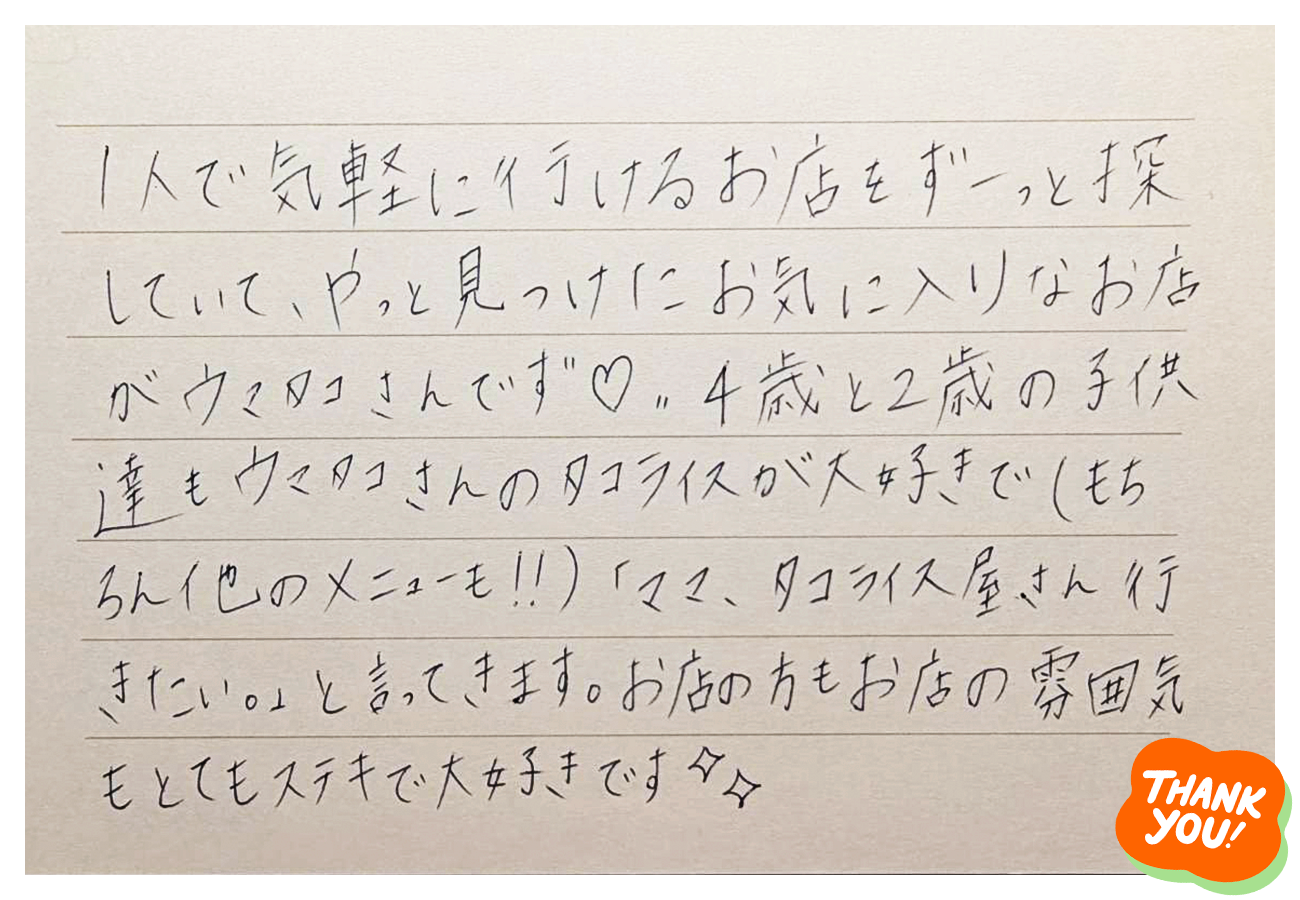 1人で気軽に行けるお店をずーっと探
していて、やっと見つけたお気に入りなお店
がウマタコさんです"♡〃4歳と2歳の子供
達もウマタコさんのタコライスが大好きで(もち
ろん他のメニューも!!)「ママ、タコライス屋さん行
きたい。」と言ってきます。お店の方もお店の雰囲気
もとてもステキで大好きです✧✧
THANK
YOU!